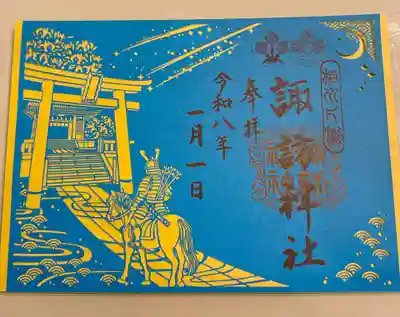 諏訪神社
奉拝
令和八年
一月一日